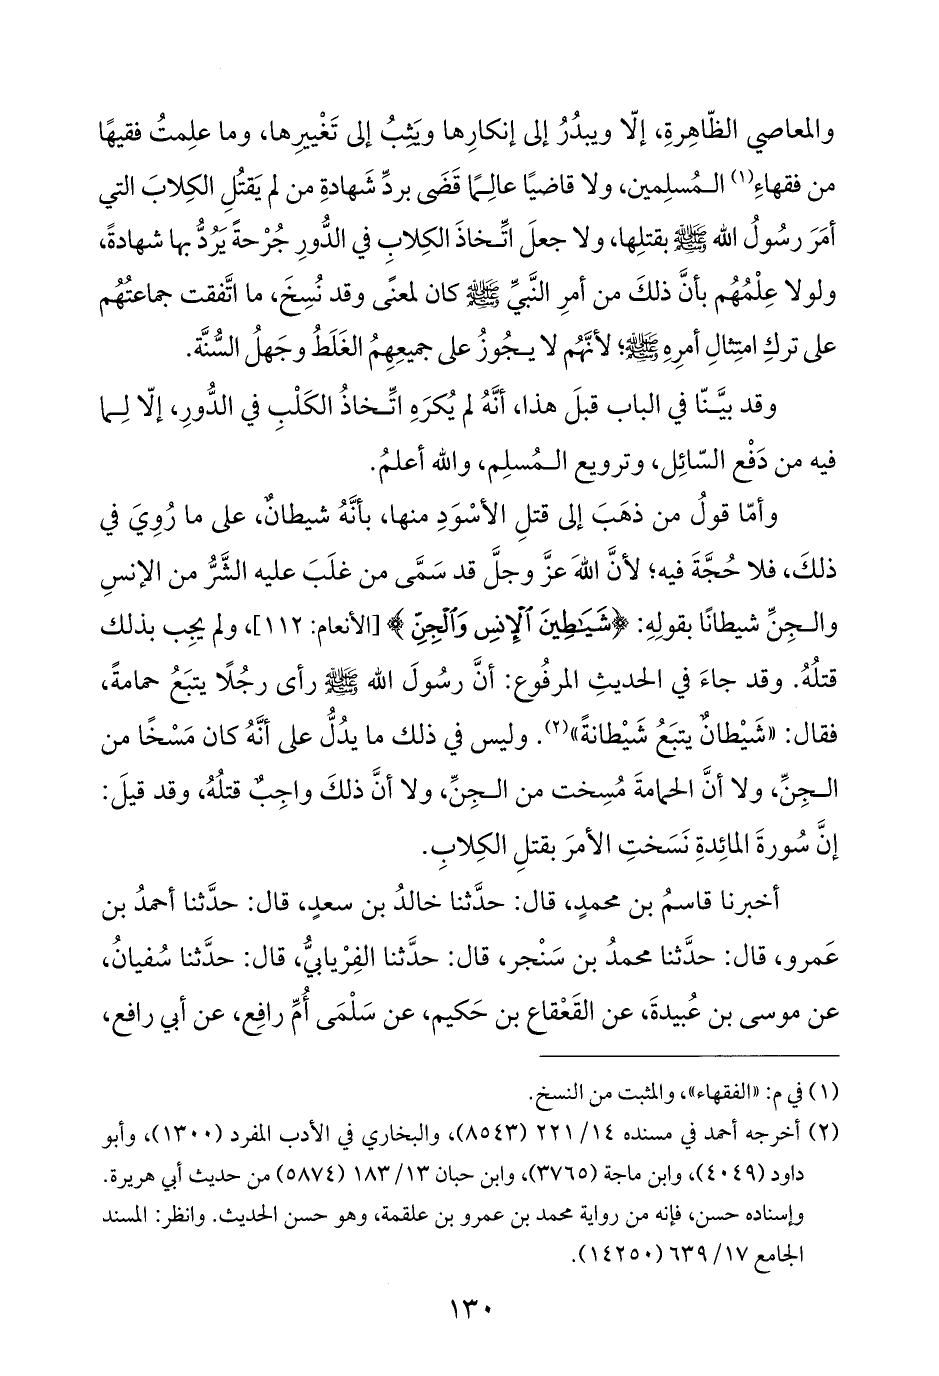 والمعاصي الظّاهِرةِ، إلّا ويبدُرُ إلى إنكارِها ويَثِبُ إلى تَغْييرِها، وما علِمتُ فقيهًا
من فقهاءِ(١) الـمُسلِمين، ولا قاضيًا عالِمًا قَضَى بردِّ شَهادةِ من لم يَقتُلِ الكِلابَ التي
أمَرَ رسُولُ الله ﷺ بقتلِها، ولا جعلَ اتِّـخاذَ الكِلابِ في الدُّورِ جُرْحةً يَرُدُّ بها شهادةً،
ولولا عِلْمُهُم بأنَّ ذلكَ من أمرِ النَّبيِّ ﷺ كان لمعنًى وقد نُسِخَ، ما اتَّفقت جماعتُهُم
على تركِ امتِثالِ أمرِهِ ﷺ؛ لأنَّهُم لا يـجُوزُ على جميعِهِمُ الغَلَطُ وجَهلُ السُّنَّة.
وقد بيَّـنّا في الباب قبلَ هذا، أنَّهُ لم يُكرَهِ اتِّـخاذُ الكَلْبِ في الدُّورِ، إلّا لِـما
فيه من دَفْع السّائِل، وترويع الـمُسلِم، والله أعلمُ.
وأمّا قولُ من ذهَبَ إلى قتلِ الأسْوَدِ منها، بأنَّهُ شيطانٌ، على ما رُوِيَ في
ذلكَ، فلا حُجَّةَ فيه؛ لأنَّ اللهَ عزَّ وجلَّ قد سَمَّى من غلَبَ عليه الشَّرُّ من الإنسِ
والـجِنِّ شيطانًا بقولِهِ: ﴿شَيَٰطِينَ ٱلْإِنسِ وَٱلْجِنِّ ﴾ [الأنعام: ١١٢]، ولم يجِب بذلك
قتلُهُ. وقد جاءَ في الحديثِ المرفُوع: أنَّ رسُولَ الله ﷺ رأى رجُلًا يتبَعُ حمامةً،
فقال: «شَيْطانٌ يتبَعُ شَيْطانةً»(٢). وليس في ذلك ما يدُلُّ على أنَّهُ كان مَسْخًا من
الـجِنِّ، ولا أنَّ الحمامةَ مُسِخت من الـجِنِّ، ولا أنَّ ذلكَ واجِبٌ قتلُهُ، وقد قيلَ:
إنَّ سُورةَ المائِدةِ نَسَختِ الأمرَ بقتلِ الكِلابِ.
أخبرنا قاسمُ بن محمدٍ، قال: حدَّثنا خالدُ بن سعدٍ، قال: حدَّثنا أحمدُ بن
عَمرو، قال: حدَّثنا محمدُ بن سَنْجر، قال: حدَّثنا الفِرْيابيُّ، قال: حدَّثنا سُفيانُ،
عن موسى بن عُبيدةَ، عن القَعْقاع بن حَكيم، عن سَلْمَى أُمِّ رافِع، عن أبي رافع،
(١) في م: «الفقهاء»، والمثبت من النسخ.
(٢) أخرجه أحمد في مسنده ١٤/ ٢٢١ (٨٥٤٣)، والبخاري في الأدب المفرد (١٣٠٠)، وأبو
داود (٤٠٤٩)، وابن ماجة (٣٧٦٥)، وابن حبان ١٣/ ١٨٣ (٥٨٧٤) من حديث أبي هريرة.
وإسناده حسن، فإنه من رواية محمد بن عمرو بن علقمة، وهو حسن الحديث. وانظر: المسند
الجامع ١٧/ ٦٣٩ (١٤٢٥٠).
١٣٠